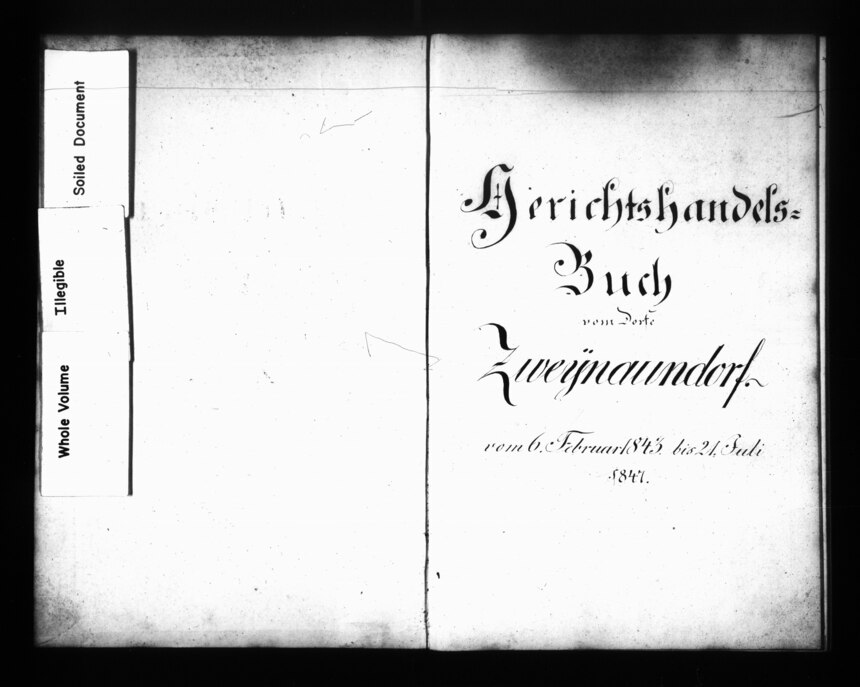 Soiled Document
Illegible
Whole Volume
Gerichtshandels=
Buch
vom Dorfe
Zweÿnaundorf.
vom 6. Februar 1843. bis 21. Juli
1847.